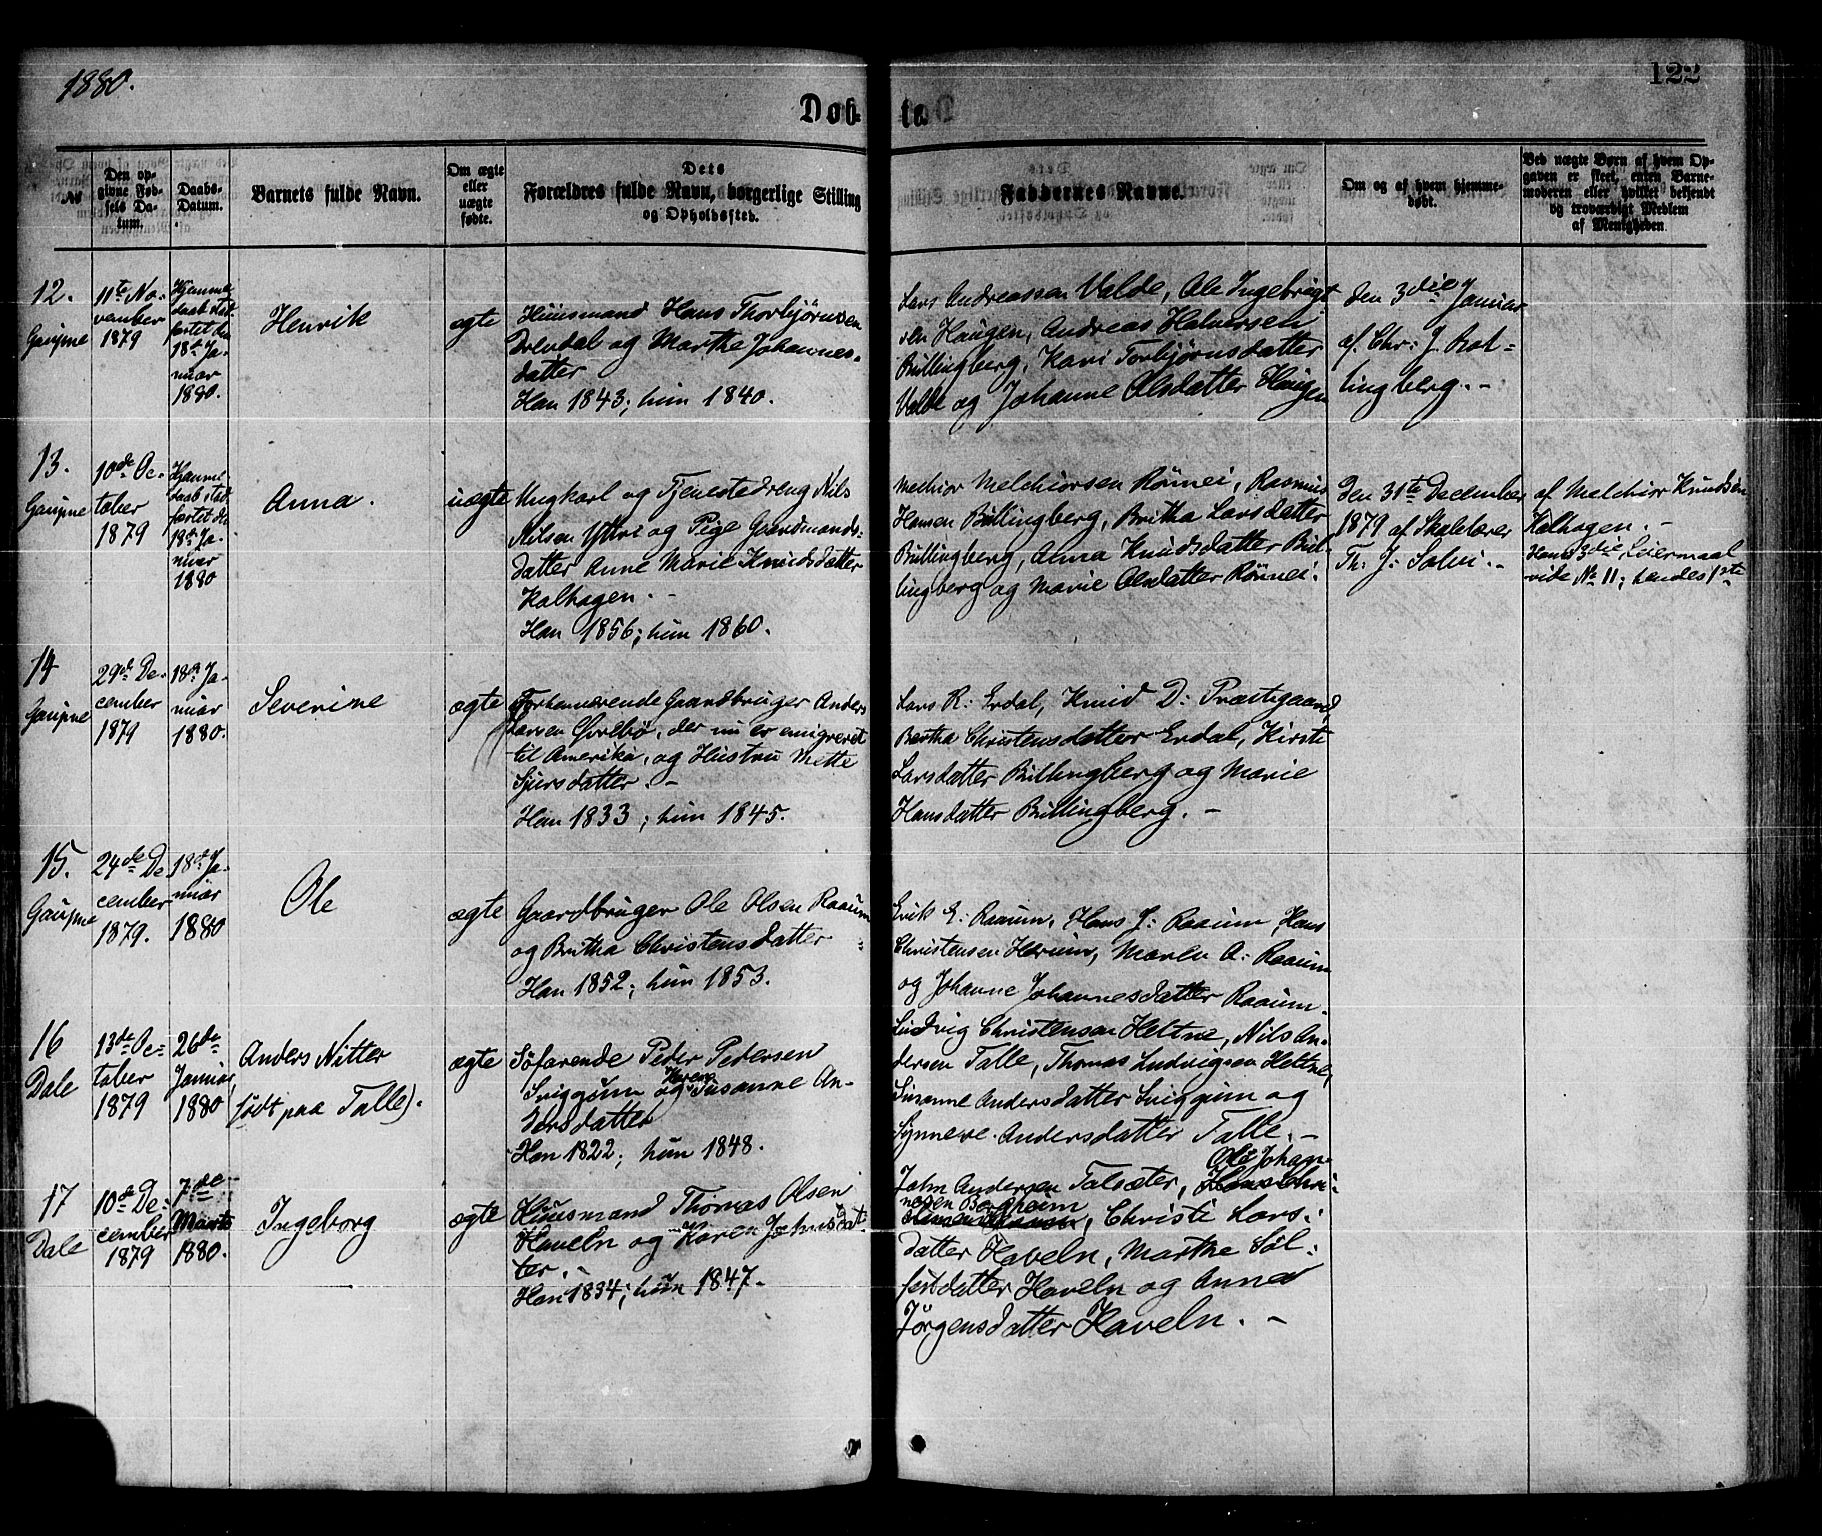 1880.
122
Døb-
te.
No
Den op-
givne Fød-
sels Da-
tum.
Daabs-
Datum.
Barnets fulde Navn.
Om ægte
eller
uægte
fødte.
Dets
Forældres fulde Navn, borgerlige Stilling
og Opholdssted.
Faddernes Navne.
Om og af hvem hjemme-
døbt.
Ved uægte Børn af hvem Op-
gaven er skeet, enten Barne-
moderen eller hvilket bekjendt
og troværdigt Medlem
af Menigheden.
12.
Gaupne
11te No-
vember
1879
Hjemme
daab stad-
fæstet den
18de Ja-
nuar
1880.
Henrik
ægte
Huusmand Hans Thorbjørnsen
og Marthe Johannes-
datter
Han 1843; hun 1840.
Lars Andreassen Velde, Ole Ingebrigt-
sen Haugen, Andreas Halversen
Bullingberg, Kari Torbjørnsdatter
Velde og Johanne Olsdatter Haugen
den 3die Januar
af Chr: J. Bol-
lingberg. -
13.
Gaupne
10de Oc-
tober
1879
Hjemme
daab stad-
fæstet den
18de Ja-
nuar
1880
Anna.
uægte
Ungkarl og Tjenestedreng Nils
Nilsen Yttri og Pige Gaardmands-
datter Anne Marie Knudsdatter
Kalhagen. -
Han 1856; hun 1860.
Melchior Melchiorsen Rønnei, Rasmus
Hansen Bullingberg, Britha Larsdatter
Bullingberg, Anna Knudsdatter Bul-
lingberg og Marie Olsdatter Rønnei.
Den 31te December
1879 af Skolelærer
Th: J: Solvi. -
af Melchior Knudsen
Kalhagen. -
Hans 3die Leiermaal
vide No 11; hendes 1ste
14
Gaupne
29de De-
cember
1879
18de Ja-
nuar
1880.
Severine
ægte
Forhenværende Gaardbruger Anders
Larsen Øvrebø, der nu er emigreret
til Amerika, og Hustru Mette
Sjursdatter. -
Han 1833; hun 1845.
Lars R: Erdal, Knud D: Præstegaard,
Bertha Christensdatter Erdal, Kirsti
Larsdatter Bullingberg og Marie
Hansdatter Bullingberg. -
15.
Gaupne
24de De
cember
1879.
18de Ja-
nuar
1880
Ole
ægte
Gaardbruger Ole Olsen Raaum
og Britha Christensdatter
Han 1852; hun 1853.
Erik E: Raaum, Hans J: Raaum, Hans
Christensen Hærum, Maren A: Raaum
og Johanne Johannesdatter Raaum.
16
Dale
13de Oc-
tober
1879
26de
Januar
1880
Anders Nitter
født paa Talle).
ægte
Søfarende Peder Pedersen
Sviggum og Karen Susanne An-
dersdatter
Han 1822; hun 1848.
Ludvig Christensen Heltne, Nils An-
dersen Talle, Thomas Ludvigsen Heltne,
Susanne Andersdatter Sviggum og
Synneve Andersdatter Talle. -
17
Dale
10de De-
cember
1879
7de
Marts
1880.
Ingeborg
ægte
Huusmand Thomas Olsen
Haveln og Karen Johnsdat-
ter. -
Han 1834; hun 1847.
Ole Johan-
John Andersen Talsæter,
nesen Bergheim, Christi Lars-
datter Haveln, Marthe Søl-
festdatter Haveln og Anna
Jørgensdatter Haveln. -